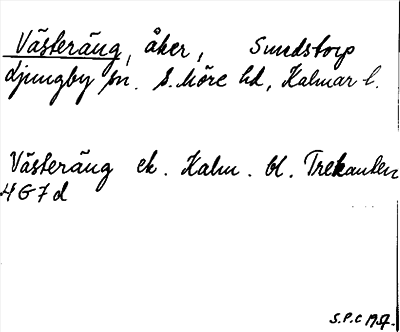 Västeräng, åker, Sundstorp
Ljungby sn. S. Möre hd, Kalmar l.
Västeräng ek. Kalm. bl. Trekanten
4G7d
S.P.C 1957.